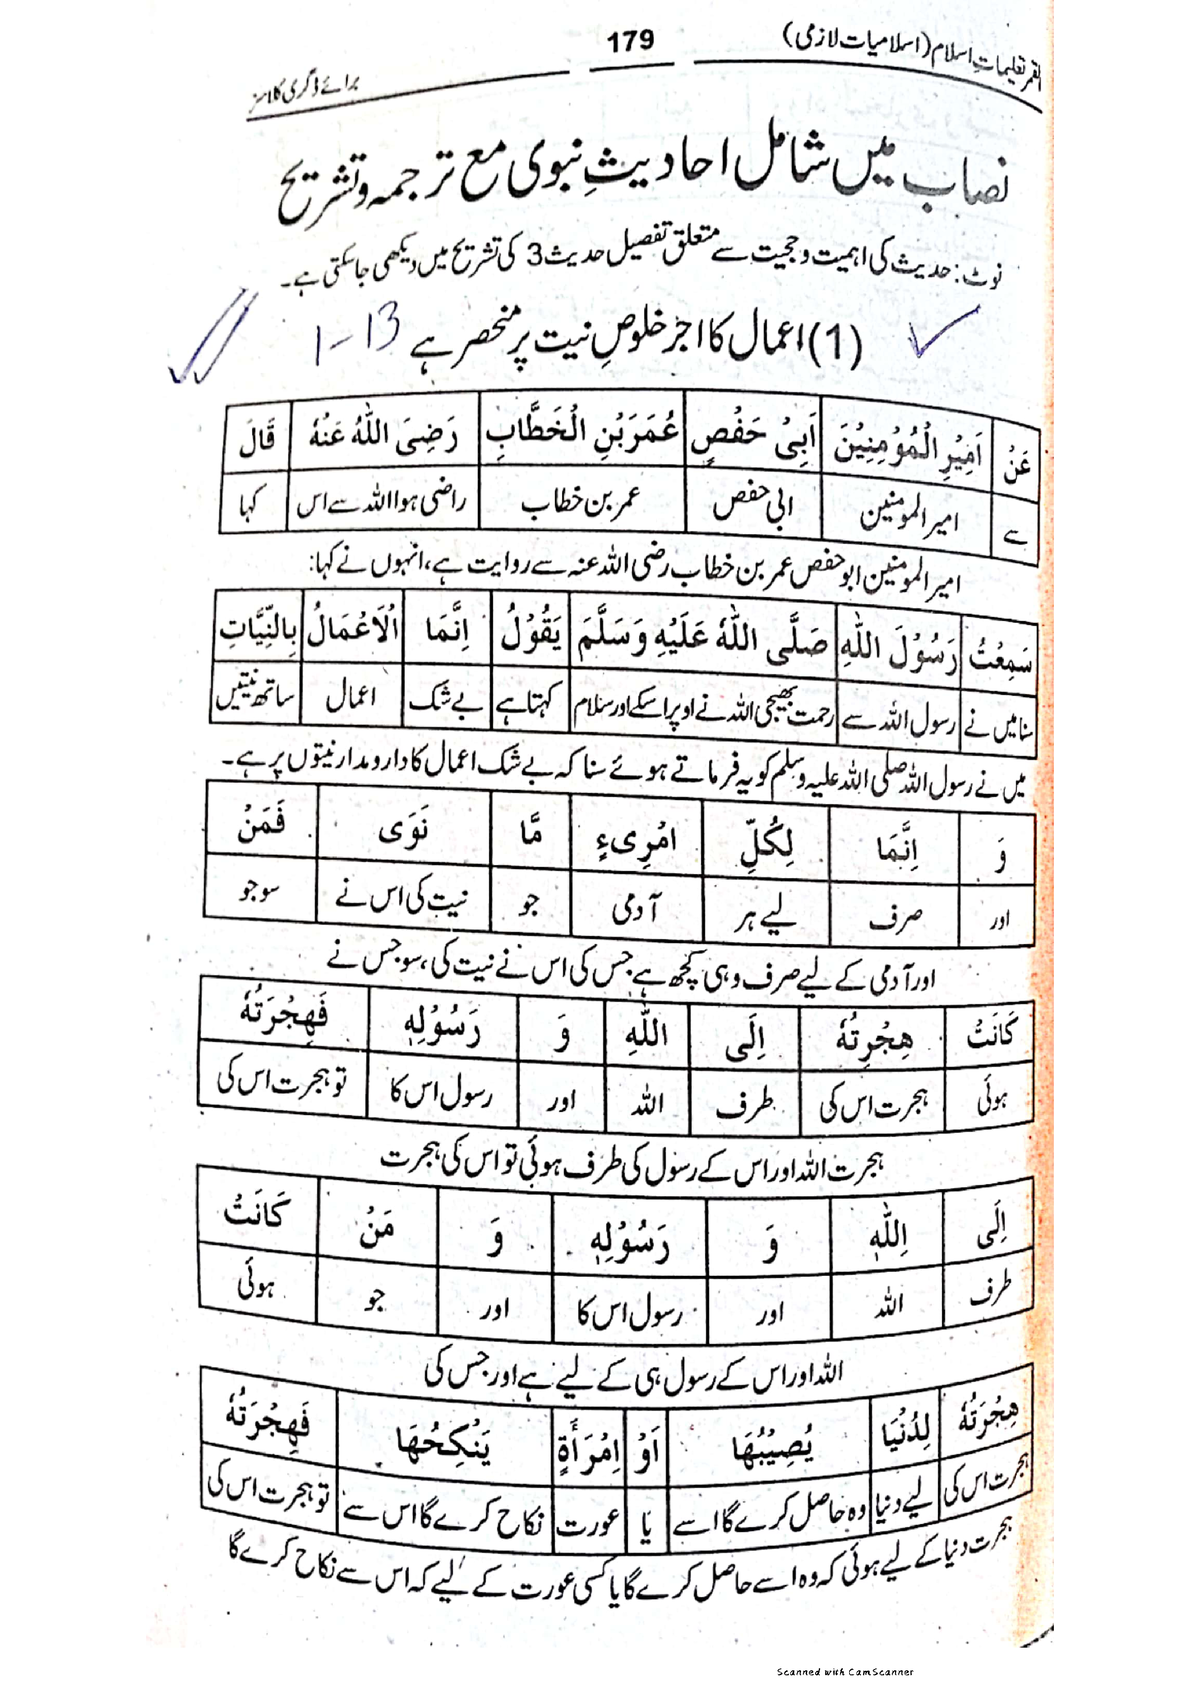 القمر تعلیماتِ اسلام (اسلامیات لازمی)
179
برائے ڈگری کلاسز
نصاب میں شامل احادیثِ نبوی مع ترجمہ و تشریح
نوٹ: حدیث کی اہمیت و حجیت سے متعلق تفصیل حدیث 3 کی تشریح میں دیکھی جا سکتی ہے۔
(1) اعمال کا اجر خلوصِ نیت پر منحصر ہے 1-13
عَنْ اَمِيْرِ الْمُؤْمِنِيْنَ اَبِىْ حَفْصٍ عُمَرَ بْنِ الْخَطَّابِ رَضِىَ اللّٰهُ عَنْهُ قَالَ
سے امیر المومنین ابی حفص عمر بن خطاب راضی ہوا اللہ سے اس کہا
امیر المومنین ابو حفص عمر بن خطاب رضی اللہ عنہ سے روایت ہے، انہوں نے کہا:
سَمِعْتُ رَسُوْلَ اللّٰهِ صَلَّى اللّٰهُ عَلَيْهِ وَسَلَّمَ يَقُوْلُ اِنَّمَا الْاَعْمَالُ بِالنِّيَّاتِ
سنا میں نے رسول اللہ سے رحمت بھیجی اللہ نے اوپر اسکے اور سلام کہتا ہے بے شک اعمال ساتھ نیتیں
میں نے رسول اللہ صلی اللہ علیہ وسلم کو یہ فرماتے ہوئے سنا کہ بے شک اعمال کا دارومدار نیتوں پر ہے۔
وَ اِنَّمَا لِكُلِّ امْرِىءٍ مَّا نَوَى فَمَنْ
اور صرف لیے ہر آدمی جو نیت کی اس نے سو جو
اور آدمی کے لیے صرف وہی کچھ ہے جس کی اس نے نیت کی، سو جس نے
كَانَتْ هِجْرِتُهٗ اِلَى اللّٰهِ وَ رَسُوْلِهٖ فَهِجْرَتُهٗ
ہوئی ہجرت اس کی طرف اللہ اور رسول اس کا تو ہجرت اس کی
ہجرت اللہ اور اس کے رسول کی طرف ہوئی تو اس کی ہجرت
اِلَى اللّٰهِ وَ رَسُوْلِهٖ وَ مَنْ كَانَتْ
طرف اللہ اور رسول اس کا اور جو ہوئی
اللہ اور اس کے رسول ہی کے لیے ہے اور جس کی
هِجْرَتُهٗ لِدُنْيَا يُصِيْبُهَا اَوْ اِمْرَأَةٍ يَنْكِحُهَا فَهِجْرَتُهٗ
ہجرت اس کی لیے دنیا وہ حاصل کرے گا اسے یا عورت نکاح کرے گا اس سے تو ہجرت اس کی
ہجرت دنیا کے لیے ہوئی کہ وہ اسے حاصل کرے گا یا کسی عورت کے لیے کہ اس سے نکاح کرے گا
Scanned with CamScanner